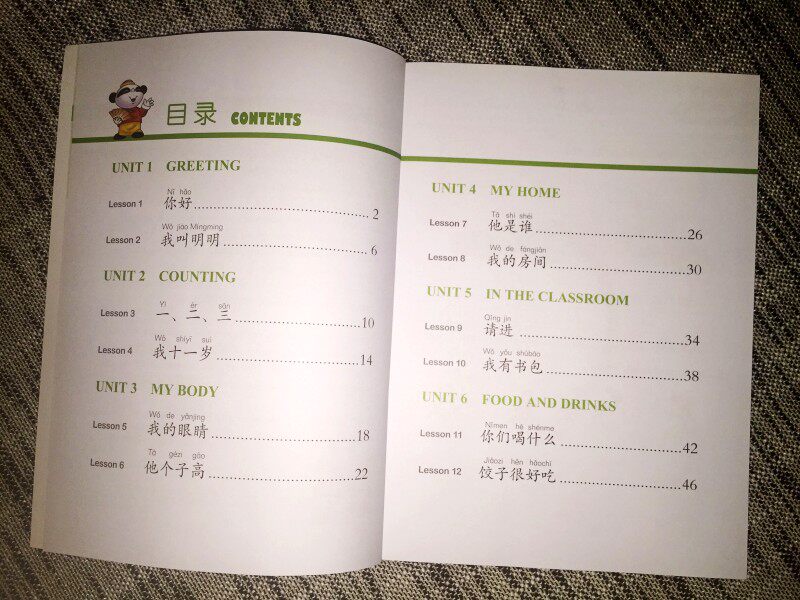 目录 CONTENTS
UNIT 1 GREETING
Nǐ hǎo
Lesson 1 你好 2
Wǒ jiào Míngming
Lesson 2 我叫明明 6
UNIT 2 COUNTING
Yī èr sān
Lesson 3 一、二、三 10
Wǒ shíyī suì
Lesson 4 我十一岁 14
UNIT 3 MY BODY
Wǒ de yǎnjing
Lesson 5 我的眼睛 18
Tā gèzi gāo
Lesson 6 他个子高 22
UNIT 4 MY HOME
Tā shì shéi
Lesson 7 他是谁 26
Wǒ de fángjiān
Lesson 8 我的房间 30
UNIT 5 IN THE CLASSROOM
Qǐng jìn
Lesson 9 请进 34
Wǒ yǒu shūbāo
Lesson 10 我有书包 38
UNIT 6 FOOD AND DRINKS
Nǐmen hē shénme
Lesson 11 你们喝什么 42
Jiǎozi hěn hǎochī
Lesson 12 饺子很好吃 46